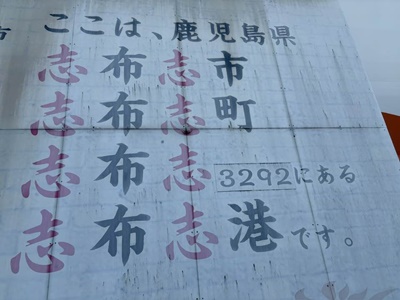 ここは、鹿児島県
志布志市
志布志町
志布志3292にある
志布志港です。